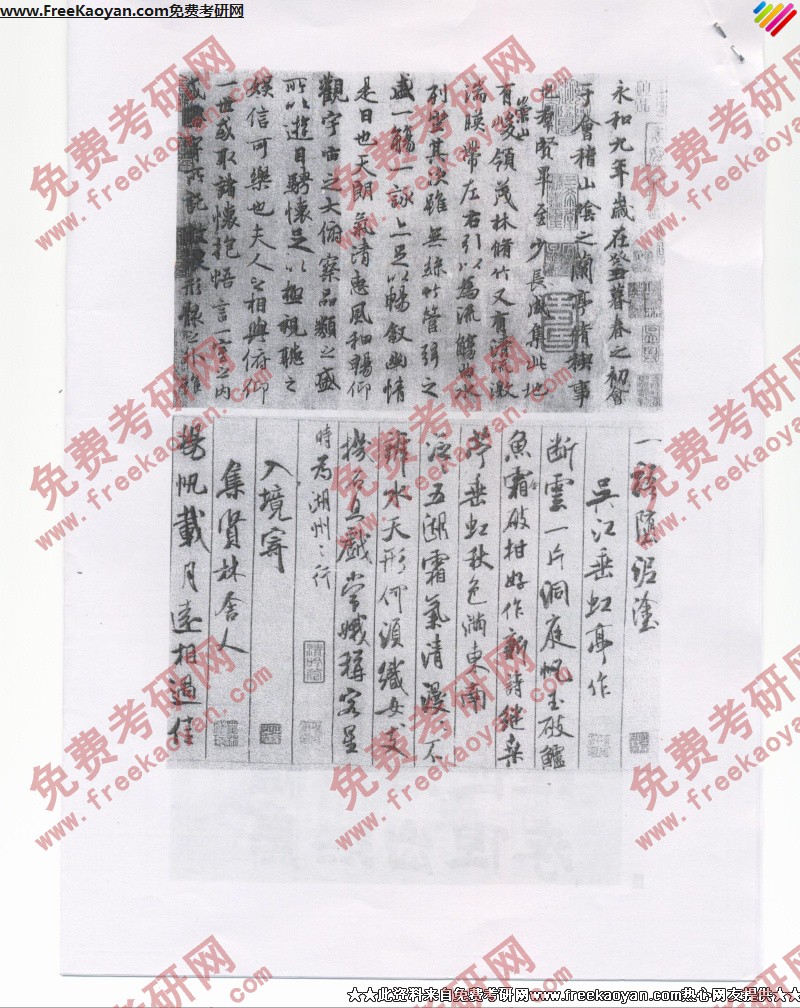 www.FreeKaoyan.com免费考研网
永和九年歲在癸丑暮春之初會
于會稽山陰之蘭亭脩稧事
也羣賢畢至少長咸集此地
有崇山峻領茂林脩竹又有清流激
湍暎帶左右引以為流觴曲水
列坐其次雖無絲竹管弦之
盛一觴一詠亦足以暢敘幽情
是日也天朗氣清惠風和暢仰
觀宇宙之大俯察品類之盛
所以遊目騁懷足以極視聽之
娛信可樂也夫人之相與俯仰
一世或取諸懷抱悟言一室之內
或因寄所託放浪形骸之外雖
一語墮泥塗
吳江垂虹亭作
断雲一片洞庭帆玉破鱸
魚霜破柑好作新詩繼桑
苧垂虹秋色滿東南
泛泛五湖霜氣清漫漫不
辨水天形何須織女支
機石且戲常娥稱客星
時為湖州之行
入境寄
集賢林舍人
揚帆載月遠相過佳
免费考研网
www.freekaoyan.com
★★此资料来自免费考研网www.freekaoyan.com热心网友提供★★